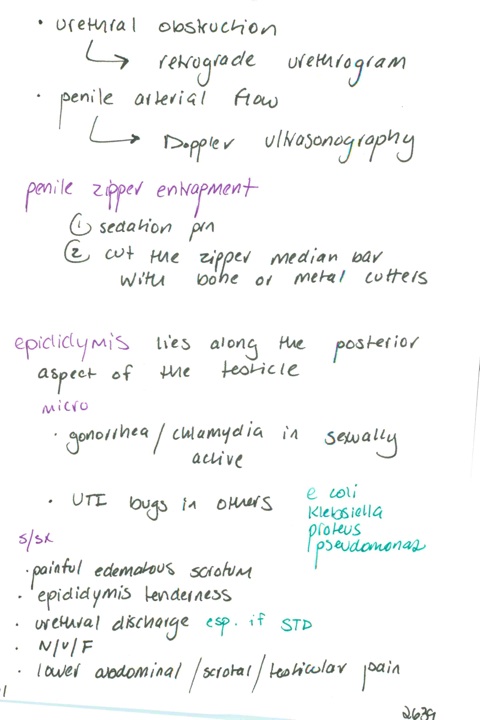 · urethral obstruction
↳ retrograde urethrogram
· penile arterial flow
↳ Doppler ultrasonography
penile zipper entrapment
① sedation prn
② cut the zipper median bar
with bone or metal cutters
epididymis lies along the posterior
aspect of the testicle
micro
· gonorrhea / chlamydia in sexually
active
· UTI bugs in others
e coli
Klebsiella
proteus
pseudomonas
s/sx
· painful edematous scrotum
· epididymis tenderness
· urethral discharge esp. if STD
· N/V/F
· lower abdominal / scrotal / testicular pain